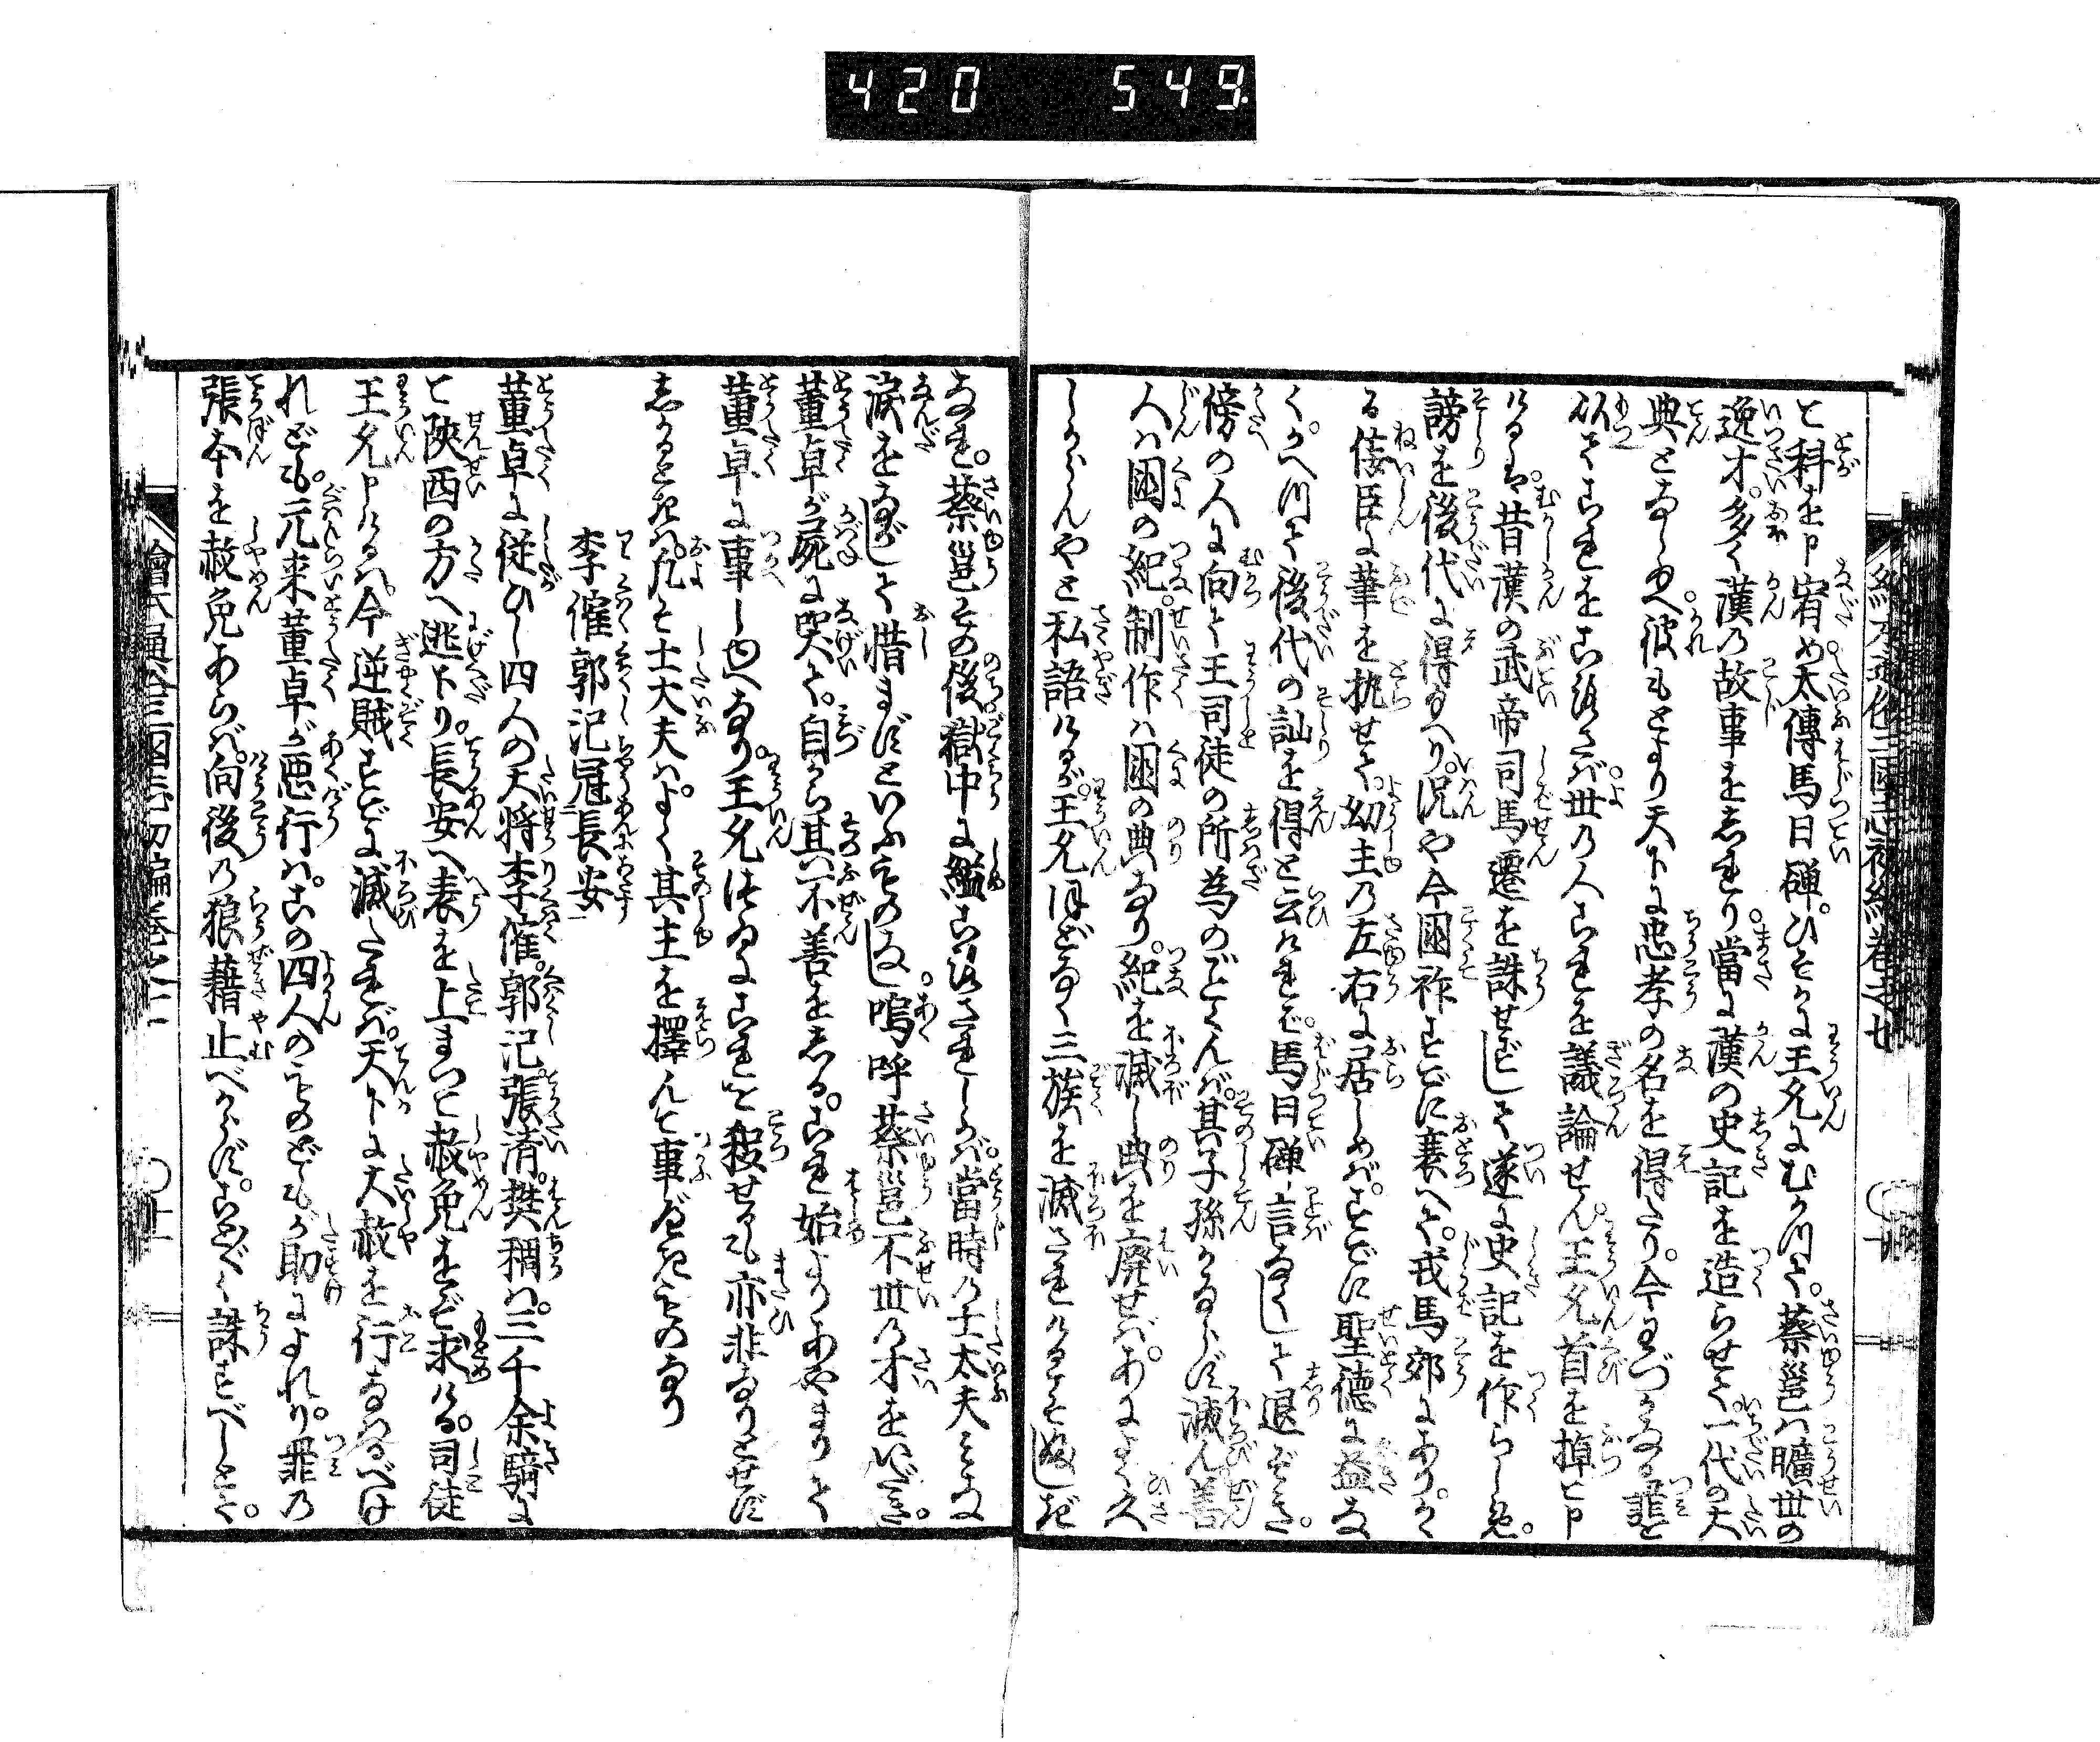 420 549
と科を申宥め太傅馬日磾。ひそかに王允にむかつて。蔡邕は曠世の
逸才。多く漢の故事をしれり。當に漢の史記を造らせて。一代の大
典となしめ。彼もとより天下に忠孝の名を得たり。今わづかなる罪を
以てこれをころさば。世の人これを議論せん。王允首を掉と申
けるは。昔漢の武帝司馬遷を誅せずして遂に史記を作らしめ。
謗を後代に得給へり。況や今國祚すでに衰へて。戎馬郊にあり。か
る佞臣に筆を執せて。幼主の左右に居しめば。すでに聖徳に益な
く。かへつて後代の訕を得と云ければ。馬日磾言なくして退ぞき。
傍の人に向て王司徒の所為のごとくんば。其子孫かならず滅ん善
人は國の紀。制作は國の典なり。紀を滅し典を廃せば。あによく久
しからんやと私語けるが。王允ほどなく三族を滅されけるぞ
なき。蔡邕その後獄中に縊ころされしかば。當時の士太夫みな
涙をながして惜まずといふものなし。嗚呼蔡邕不世の才をいだき。
董卓が屍に哭て。自から其不善をしる。これ始よりあやまりて
董卓に事しゆへなり。王允つゐにこれを殺せるも亦非なりとせず
しかるときは。凡そ士大夫は。よく其主を擇んで事べきものなり
李傕郭汜冦長安
董卓に従ひし四人の大将李傕。郭汜。張済。樊稠は。三千余騎に
て陝西の方へ逃下り。長安へ表を上まつて赦免をぞ求ける。司徒
王允申けるは。今逆賊すでに滅たれば。天下に大赦を行なはるべけ
れども。元来董卓が悪行は。この四人のものどもが助によれり。罪の
張本を赦免あらば。向後の狼藉止べからず。ことごとく誅すべしとて。